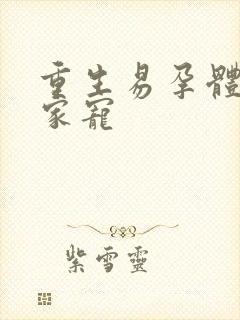 重生易孕體
家寵
紫雪靈